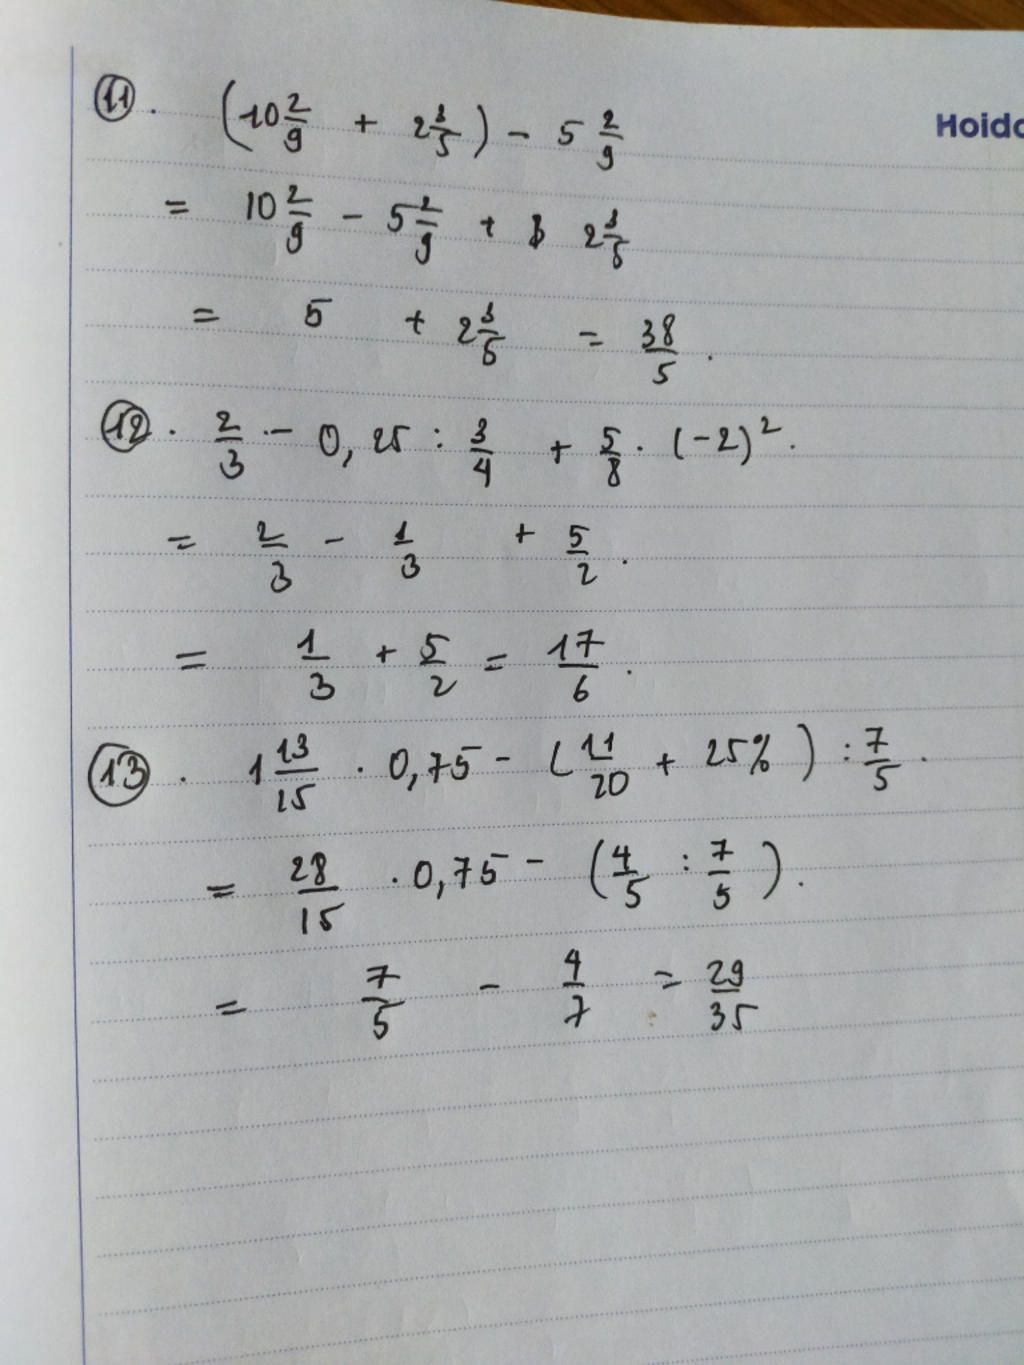 11. (10 2/9 + 2 3/5) - 5 2/9
= 10 2/9 - 5 2/9 + 2 3/5
= 5 + 2 3/5 = 38/5.
12. 2/3 - 0,25 : 3/4 + 5/8 . (-2)².
= 2/3 - 1/3 + 5/2.
= 1/3 + 5/2 = 17/6.
13. 1 13/15 . 0,75 - (11/20 + 25%) : 7/5.
= 28/15 . 0,75 - (4/5 : 7/5).
= 7/5 - 4/7 = 29/35